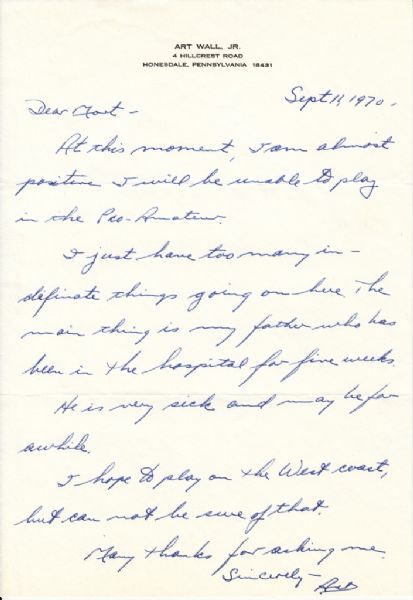 ART WALL, JR.
4 HILLCREST ROAD
HONESDALE, PENNSYLVANIA 18431
Sept 11, 1970.
Dear Mort -
At this moment, I am almost
positive I will be unable to play
in the Pro-Amateur.
I just have too many in-
definate things going on here. The
main thing is my father who has
been in the hospital for five weeks.
He is very sick and may be for
awhile.
I hope to play on the West coast,
but can not be sure of that.
Many thanks for asking me.
Sincerely -
Art